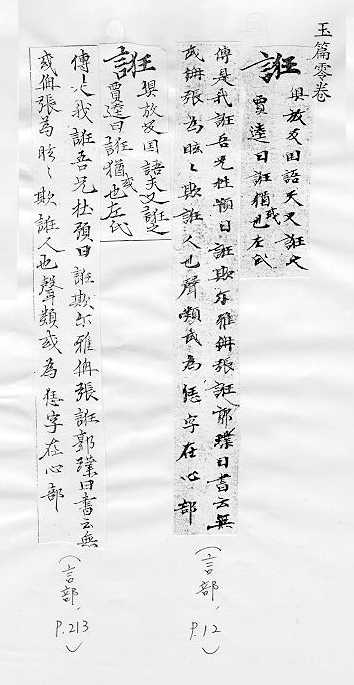 玉篇零卷
誑
俱放反国語天又誑之
賈逵曰誑猶惑也左氏
傳是我誑吾兄杜預曰誑欺尒雅侜張誑郭璞曰書云無
或侜張為眩〻欺誑人也聲類或為𢘟字在心部
(言部, P.12)
誑
俱放反国語天又誑之
賈逵曰誑猶惑也左氏
傳是我誑吾兄杜預曰誑欺尒雅侜張誑郭璞曰書云無
或侜張為眩〻欺誑人也聲類或為字在心部
(言部, P.213)